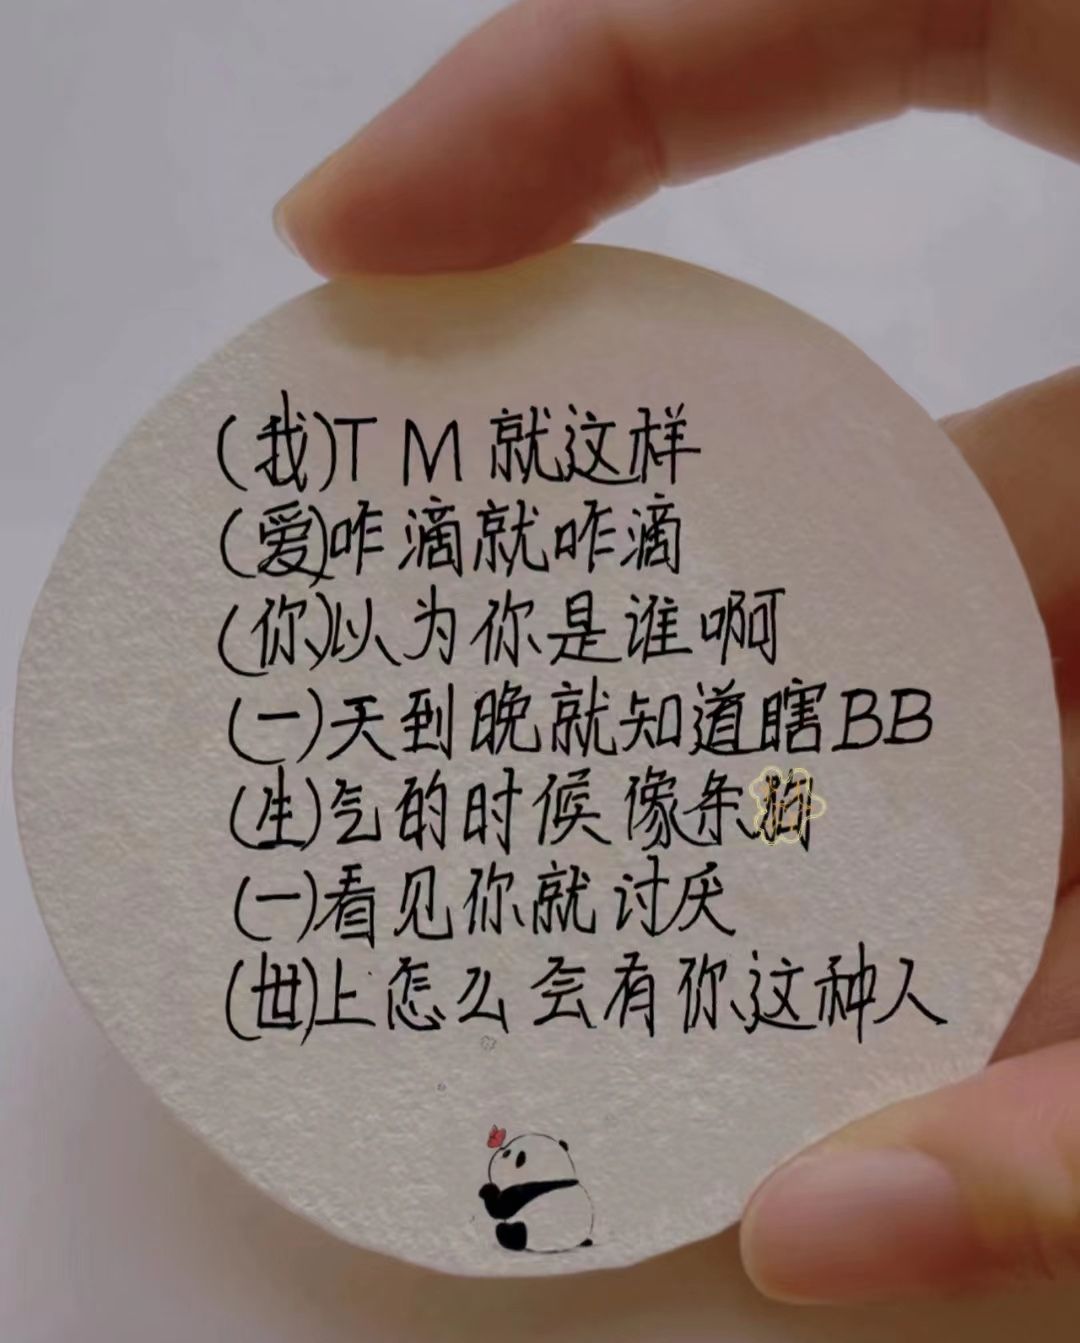 (我)TM就这样
(爱)咋滴就咋滴
(你)以为你是谁啊
(一)天到晚就知道瞎BB
(生)气的时候像条
(一)看见你就讨厌
(世)上怎么会有你这种人